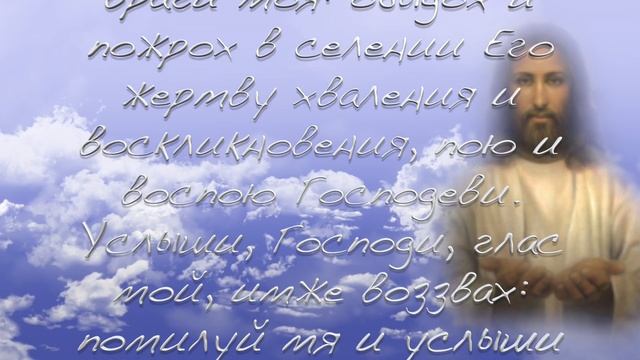 враги моя: обыдох и
пожрох в селении Его
жертву хваления и
воскликновения, пою и
воспою Господеви.
Услыши, Господи, глас
мой, имже воззвах:
помилуй мя и услыши